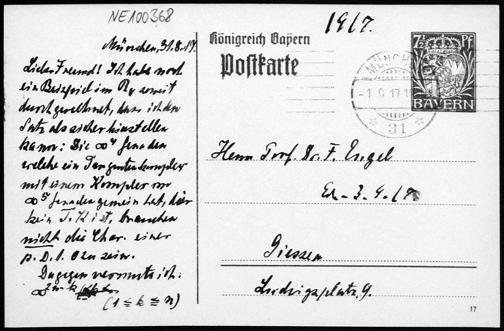 NE100368
München, 31.8.17.
Lieber Freund! Ich habe noch
ein Beispiel im R₄ soweit
durchgerechnet, dass ich den
Satz als sicher hinstellen
kann: Die ∞⁴ Geraden
welche ein Tangentenkomplex
mit einem Komplex von
∞⁵ Geraden gemein hat, der
kein T. K. ist, brauchen
nicht die Char. einer
p. D. 1. O. zu sein.
Dagegen vermute ich:
(1 ≤ k ≤ n)
1917.
Königreich Bayern
Postkarte
7½ Pf
BAYERN
MÜNCHEN
-1.9.17.
* 31 *
Herrn Prof. Dr. F. Engel
Er. 3.9.17
Giessen
Ludwigsplatz, 9.
17